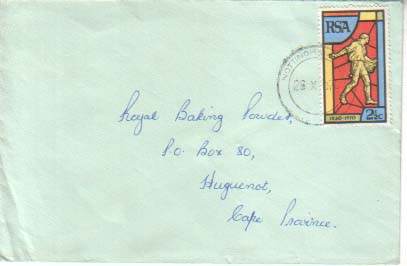 RSA
NOTTINGH
28 X
1820-1970
2½c
Royal Baking Powder,
P.O. Box 80,
Huguenot,
Cape Province.